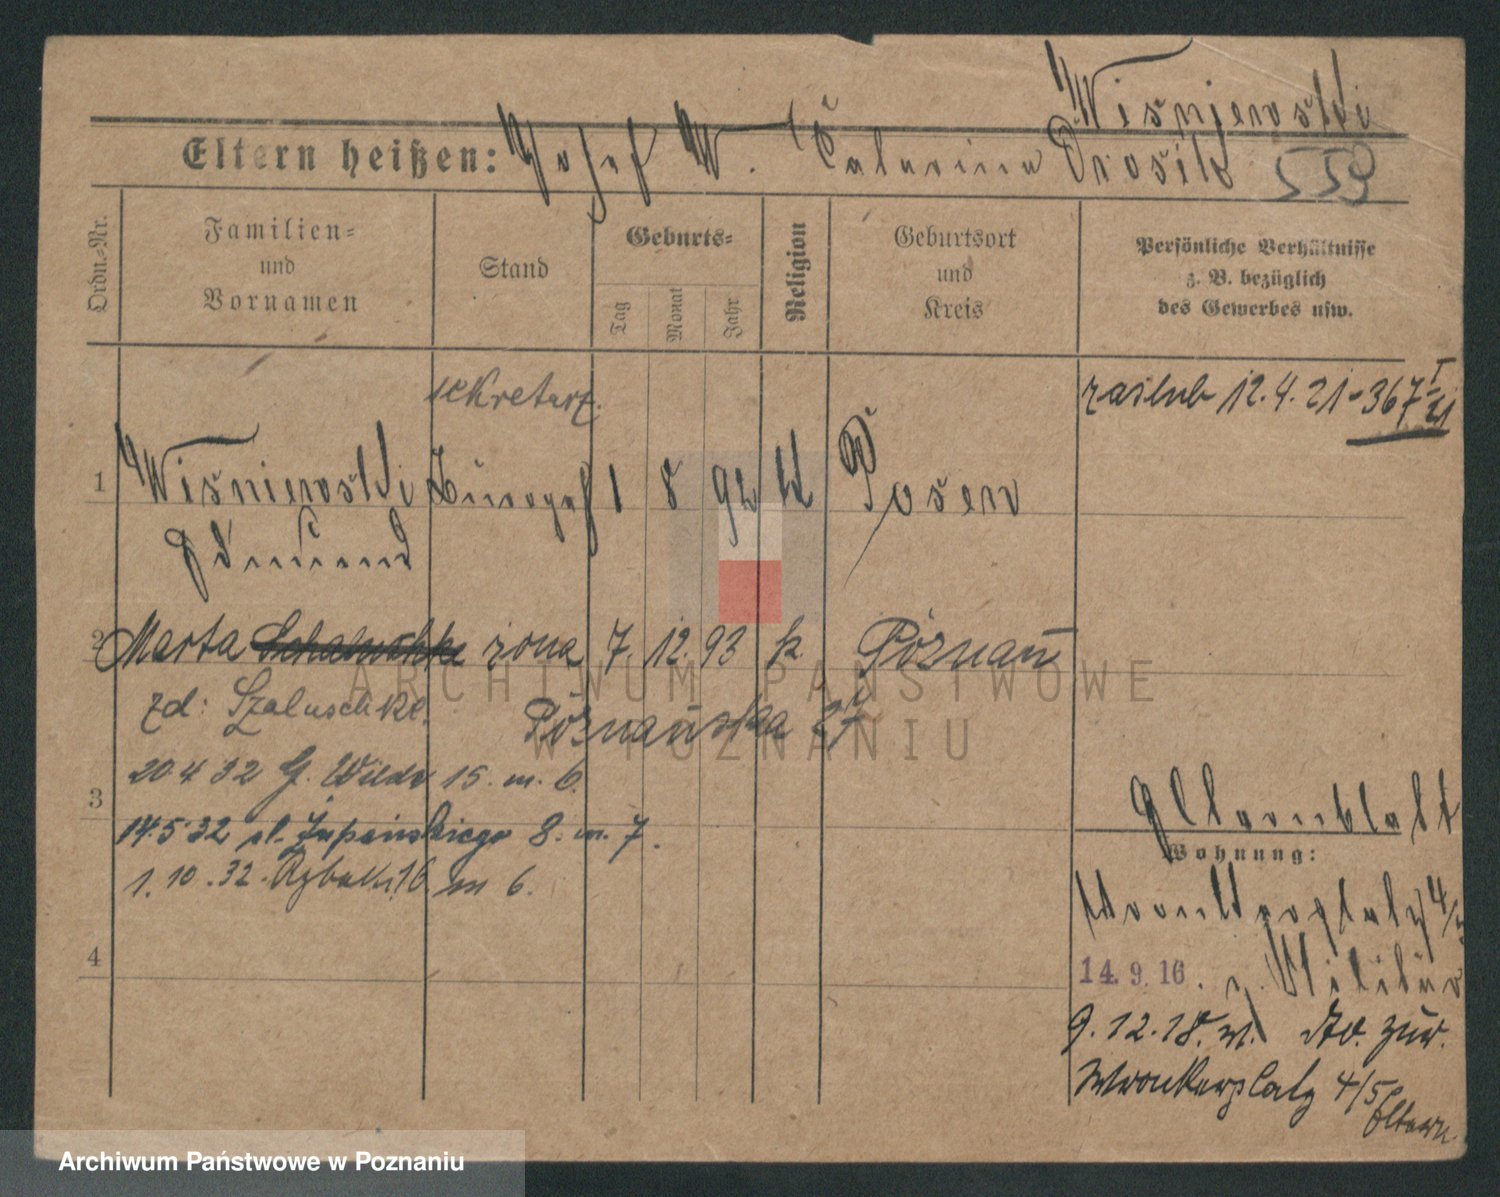 Wiśniewski
Eltern heißen: Josef W. Catarina Drosik 559
Ordn.-Nr.
Familien-
und
Vornamen
Stand
Geburts-
Tag
Monat
Jahr
Religion
Geburtsort
und
Kreis
Persönliche Verhältnisse
z. B. bezüglich
des Gewerbes usw.
sekretarz.
zaślub 12.4.21 - 367 I/21
1 Wiśniewski 1 8 92 k Posen
Edmund
2 Marta żona 7 12. 93 k Poznań
zd: Szaluschke.
Poznańska 27
20 4 32 G. Wilda 15. m. 6.
3
14.5.32 Żupańskiego 8. m. 7.
1.10.32. Rybaki 16 m 6.
4
Elternblatt
Wohnung:
Wronkerplatz 4/5
14. 9. 16. z. Militär
9.12.18. v. zur.
Wronkerplatz 4/5 Eltern
ARCHIWUM PAŃSTWOWE
W POZNANIU
Archiwum Państwowe w Poznaniu